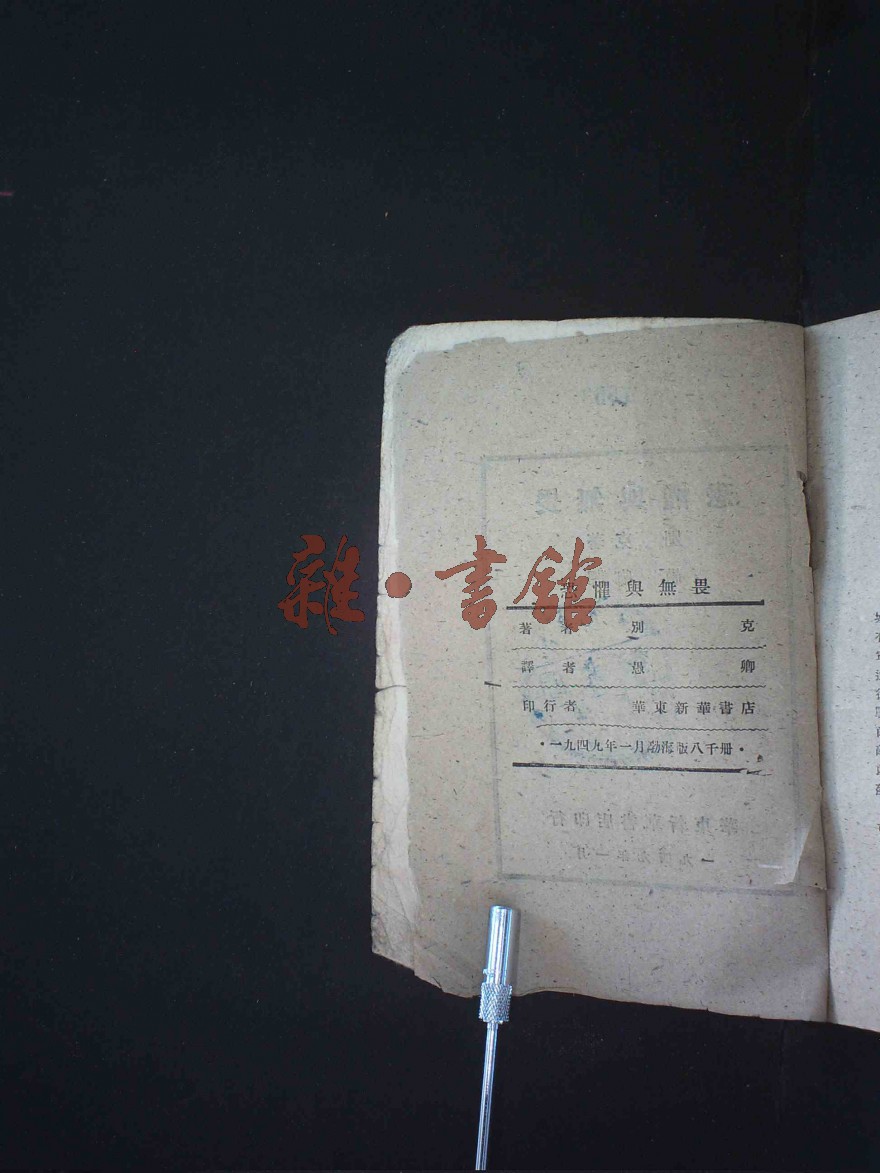 恐懼與無畏
著者 別克
譯者 愚卿
印行者 華東新華書店
·一九四九年一月渤海版八千冊·
雜·書館